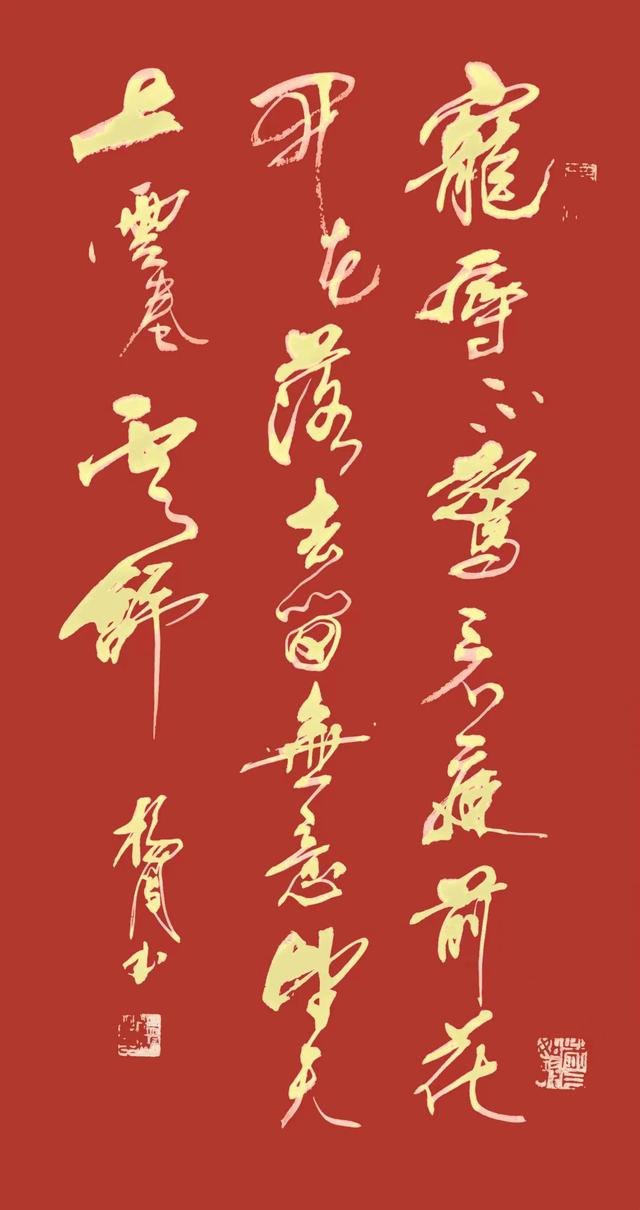 寵辱不驚看庭前花
開花落去留無意望天
上雲卷雲舒
楊 书